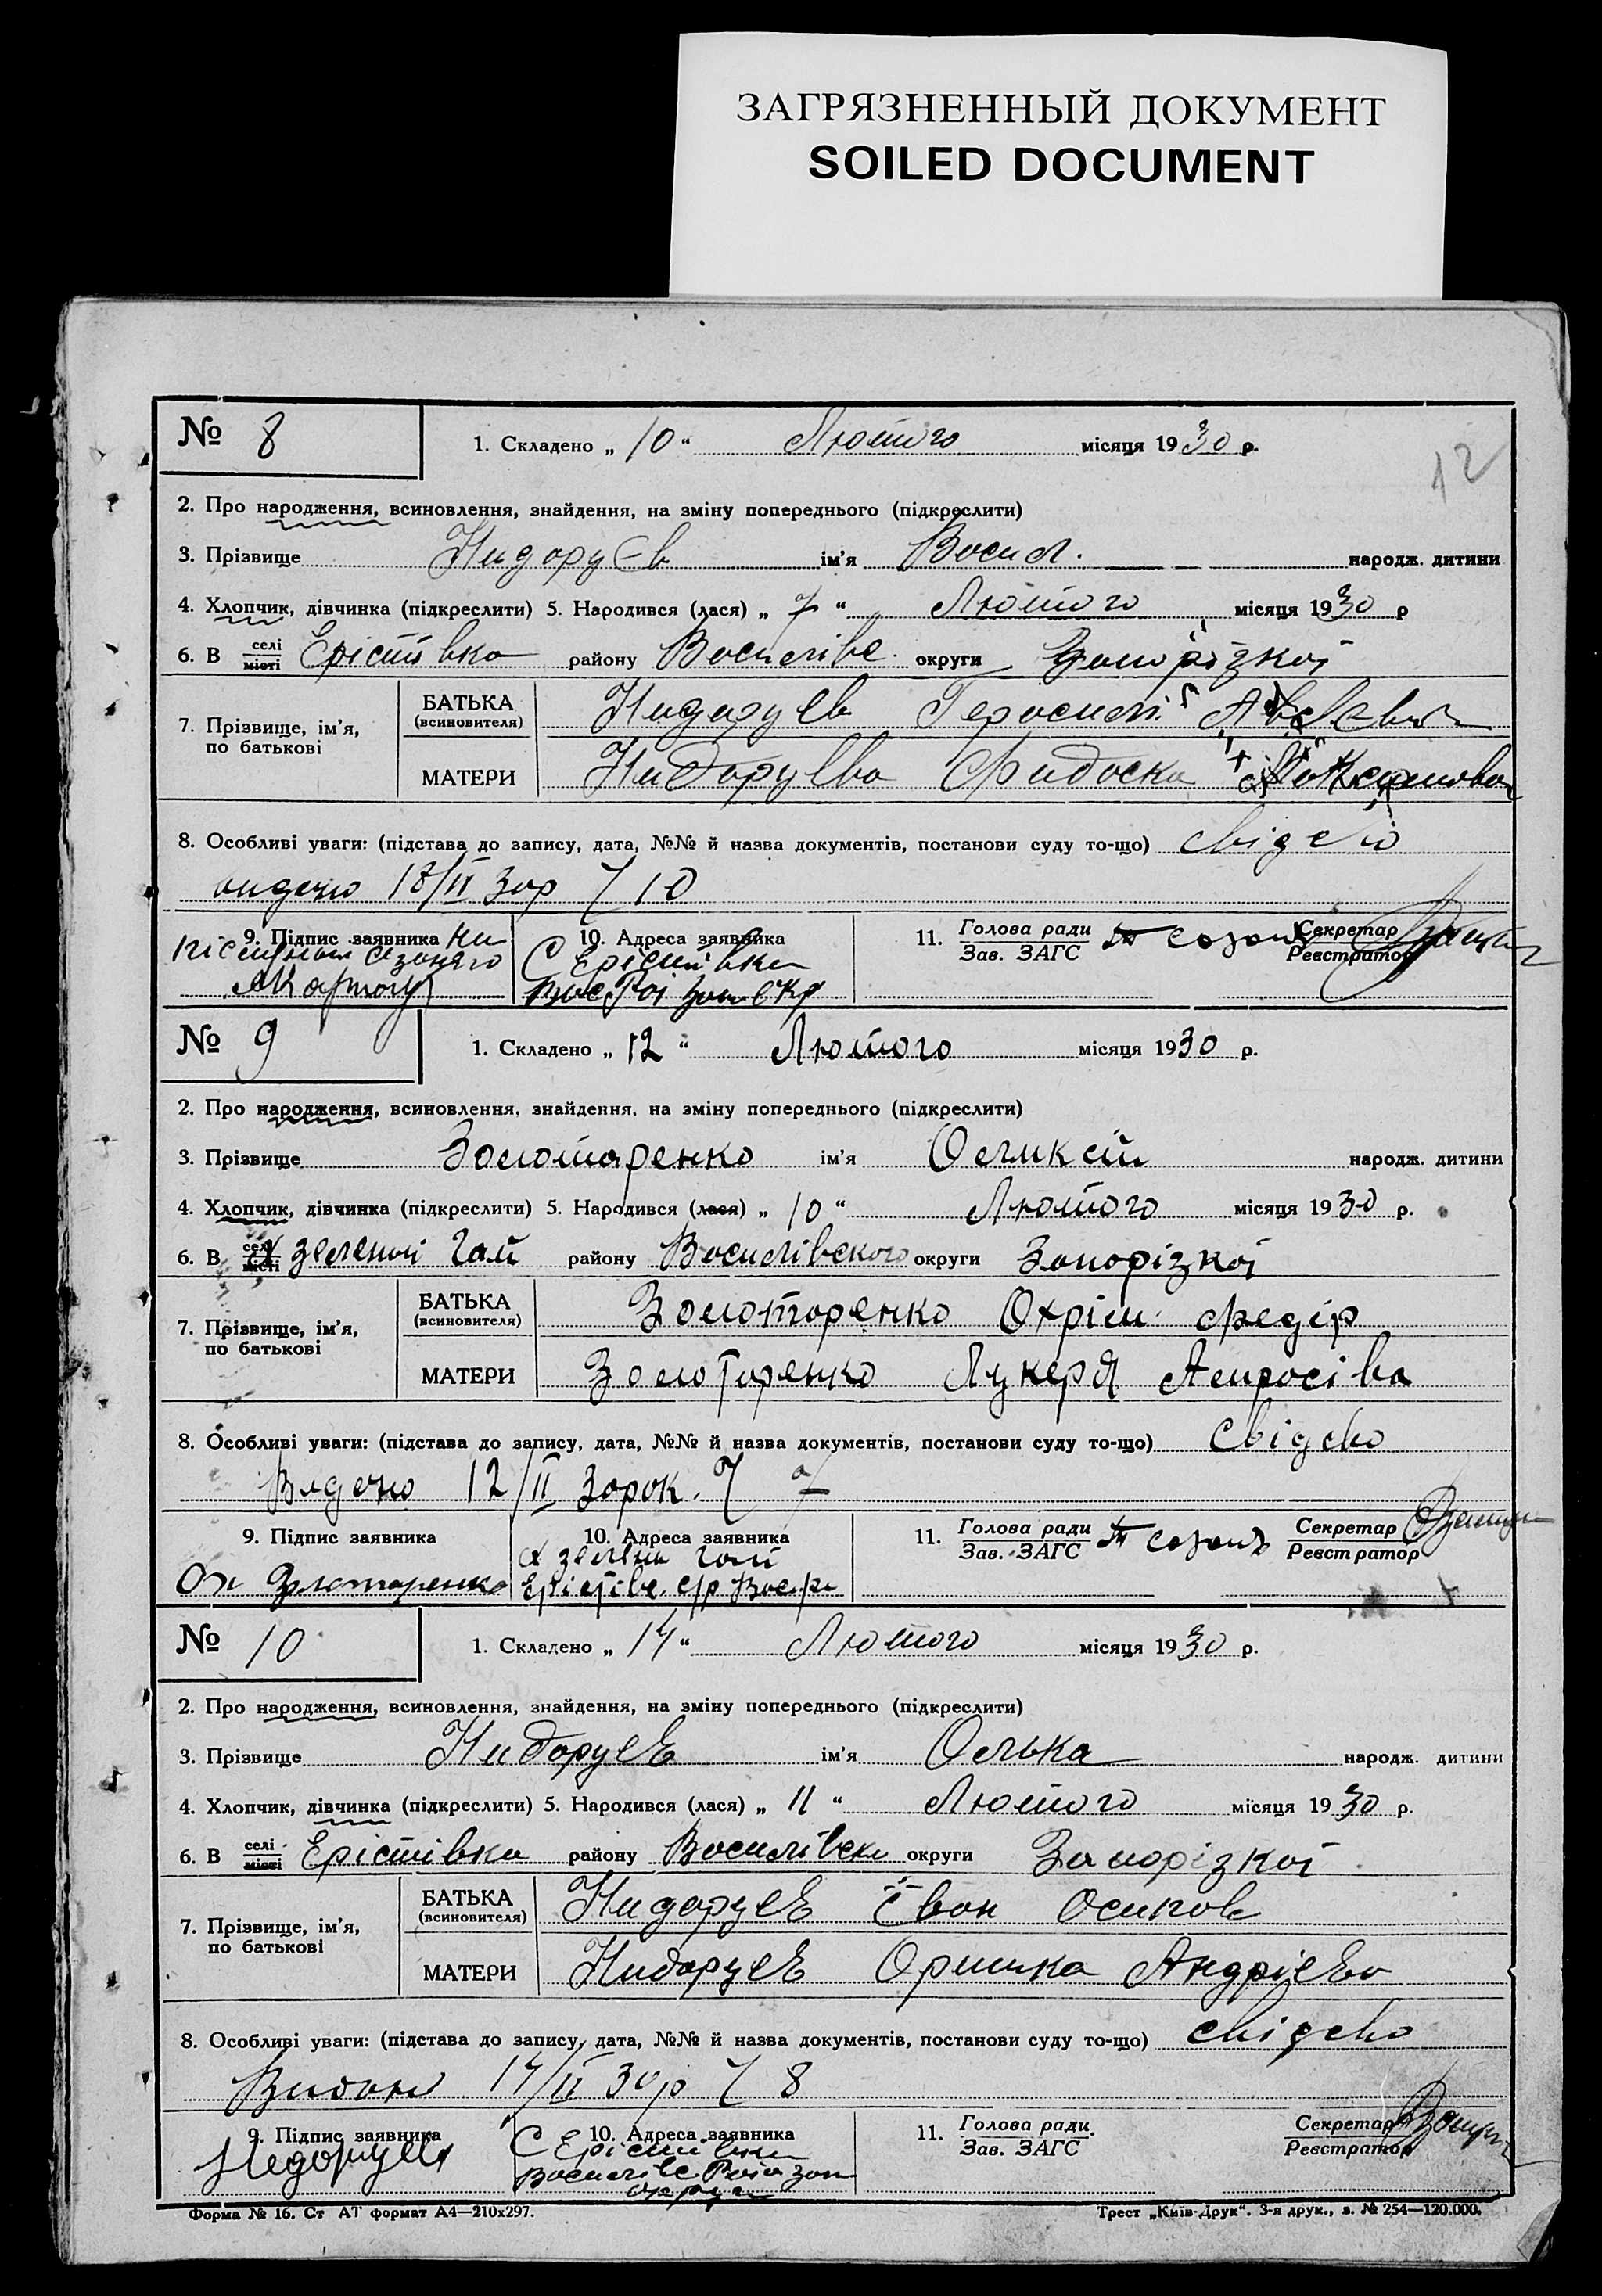 ЗАГРЯЗНЕННЫЙ ДОКУМЕНТ
SOILED DOCUMENT
12
№ 8 1. Складено „10“ Лютого місяця 1930 р.
2. Про народження, всиновлення, знайдення, на зміну попереднього (підкреслити)
3. Прізвище Нидоруєв ім'я Васил. народж. дитини
4. Хлопчик, дівчинка (підкреслити) 5. Народився (лася) „7“ Лютого місяця 1930 р
6. В селі місті Ерістівка району Василівс. округи Запорізкої
7. Прізвище, ім'я, по батькові
БАТЬКА (всиновителя) Нидоруєв Герасим
МАТЕРИ Нидоруєва Фидоска
8. Особливі уваги: (підстава до запису, дата, №№ й назва документів, постанови суду то-що) свідство
видано 18/II 30р 10
9. Підпис заявника 10. Адреса заявника 11. Голова ради Зав. ЗАГС Секретар Реєстратор
С Ерістівка
№ 9 1. Складено „12“ Лютого місяця 1930 р.
2. Про народження, всиновлення, знайдення, на зміну попереднього (підкреслити)
3. Прізвище Золотаренко ім'я Оликсій народж. дитини
4. Хлопчик, дівчинка (підкреслити) 5. Народився (лася) „10“ Лютого місяця 1930 р.
6. В селі місті х зелений Гай району Василівского округи Запорізкої
7. Прізвище, ім'я, по батькові
БАТЬКА (всиновителя) Золоторенко Охрім Федір
МАТЕРИ Золоторенко Лукеря Амросіва
8. Особливі уваги: (підстава до запису, дата, №№ й назва документів, постанови суду то-що) Свідство
Видано 12/II 30рок. 7
9. Підпис заявника 10. Адреса заявника 11. Голова ради Зав. ЗАГС Секретар Реєстратор
Ох Золотаренко
№ 10 1. Складено „14“ Лютого місяця 1930 р.
2. Про народження, всиновлення, знайдення, на зміну попереднього (підкреслити)
3. Прізвище Нидоруєв ім'я Олька народж. дитини
4. Хлопчик, дівчинка (підкреслити) 5. Народився (лася) „11“ Лютого місяця 1930 р.
6. В селі місті Ерістівка району Василівск округи Запорізкої
7. Прізвище, ім'я, по батькові
БАТЬКА (всиновителя) Нидоруєв Іван Осипов
МАТЕРИ Нидоруєв Оришка Андрієва
8. Особливі уваги: (підстава до запису, дата, №№ й назва документів, постанови суду то-що) свідство
Видано 14/II 30р 8
9. Підпис заявника 10. Адреса заявника 11. Голова ради. Зав. ЗАГС Секретар Реєстратор
С Ерістівка
Форма № 16. Ст АТ формат А4—210х297. Трест „Київ-Друк“. 3-я друк., з. № 254—120.000.